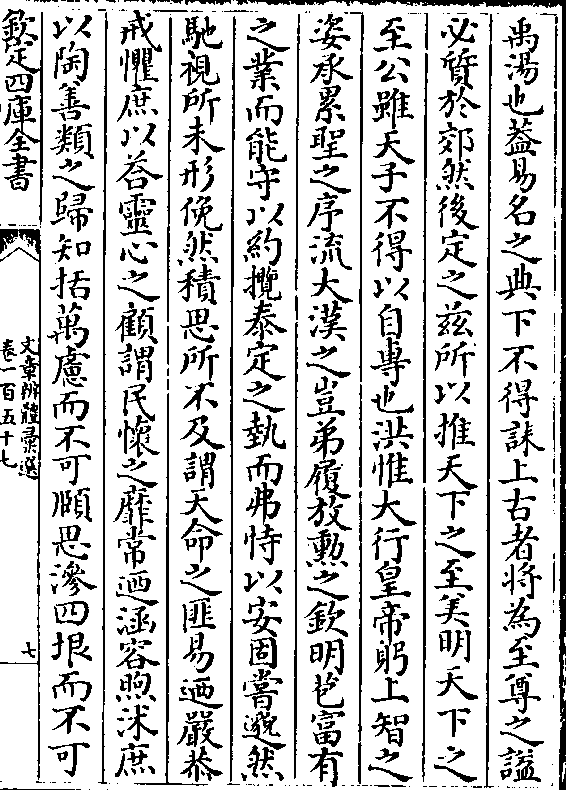 禹湯也葢易名之典下不得誄上古者將為至尊之謚
必質於郊然後定之兹所以推天下之至美明天下之
至公雖天子不得以自專也洪惟大行皇帝躬上智之
姿承累聖之序流大漢之豈弟履放勲之欽明包富有
之業而能守以約攬泰定之埶而弗恃以安固嘗邈然
馳視所未形俛然積思所不及謂天命之匪易廼嚴恭
戒懼庶以荅靈心之顧謂民懷之靡常廼涵容煦沫庶
以陶善類之歸知括萬慮而不可頥思滲四垠而不可
欽定四庫全書
文章辨體彚選
卷一百五十七
七